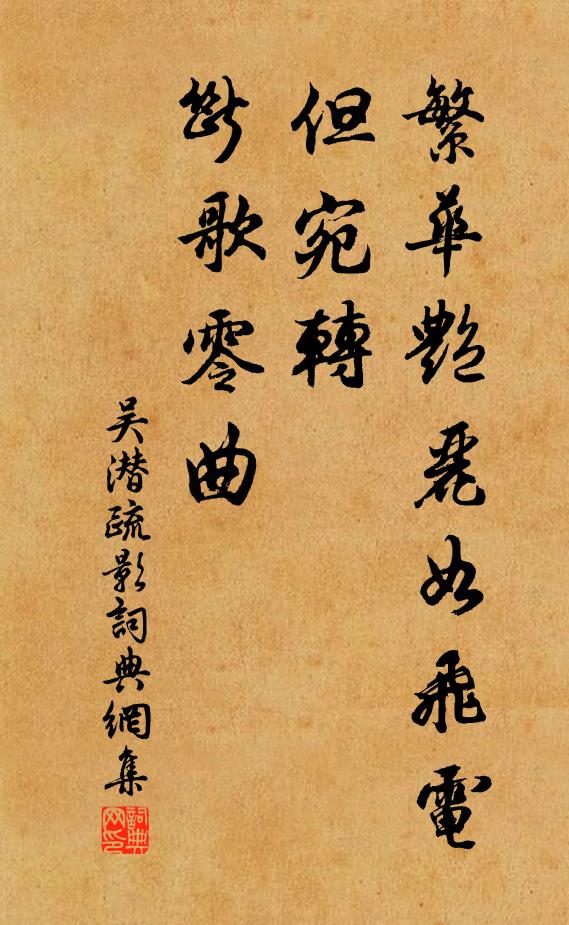 繁華艷麗如飛電
但宛轉
斷歌零曲
吴潜疏影詞典網集
詞典网印